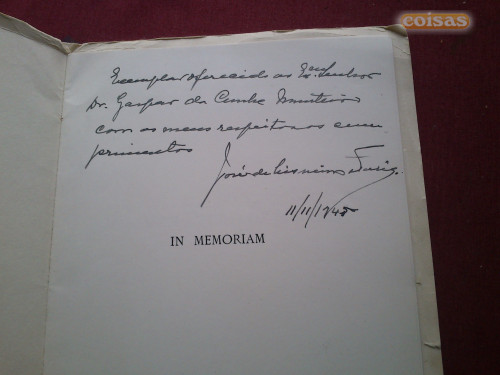 coisas
Exemplar oferecido ao Exmº Senhor
Dr. Gaspar da Cunha Monteiro
com os meus respeitosos cum
primentos
José de
11/11/1948
IN MEMORIAM